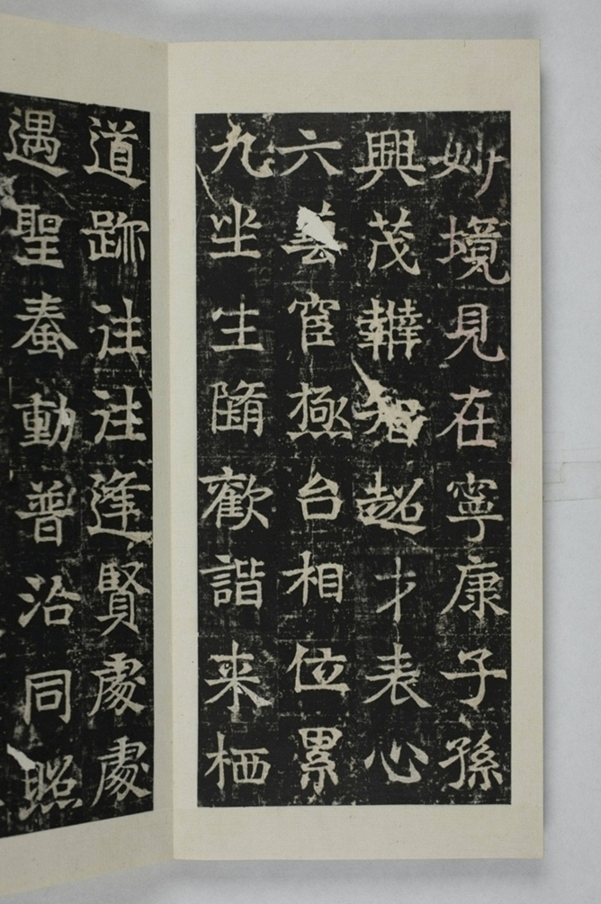 妙境見在寧康子孫
興茂辯智超才表心
六藝宦極台相位累
九坐生隨歡諧来栖
道跡往往逢賢處處
遇聖蠢動普沾同照